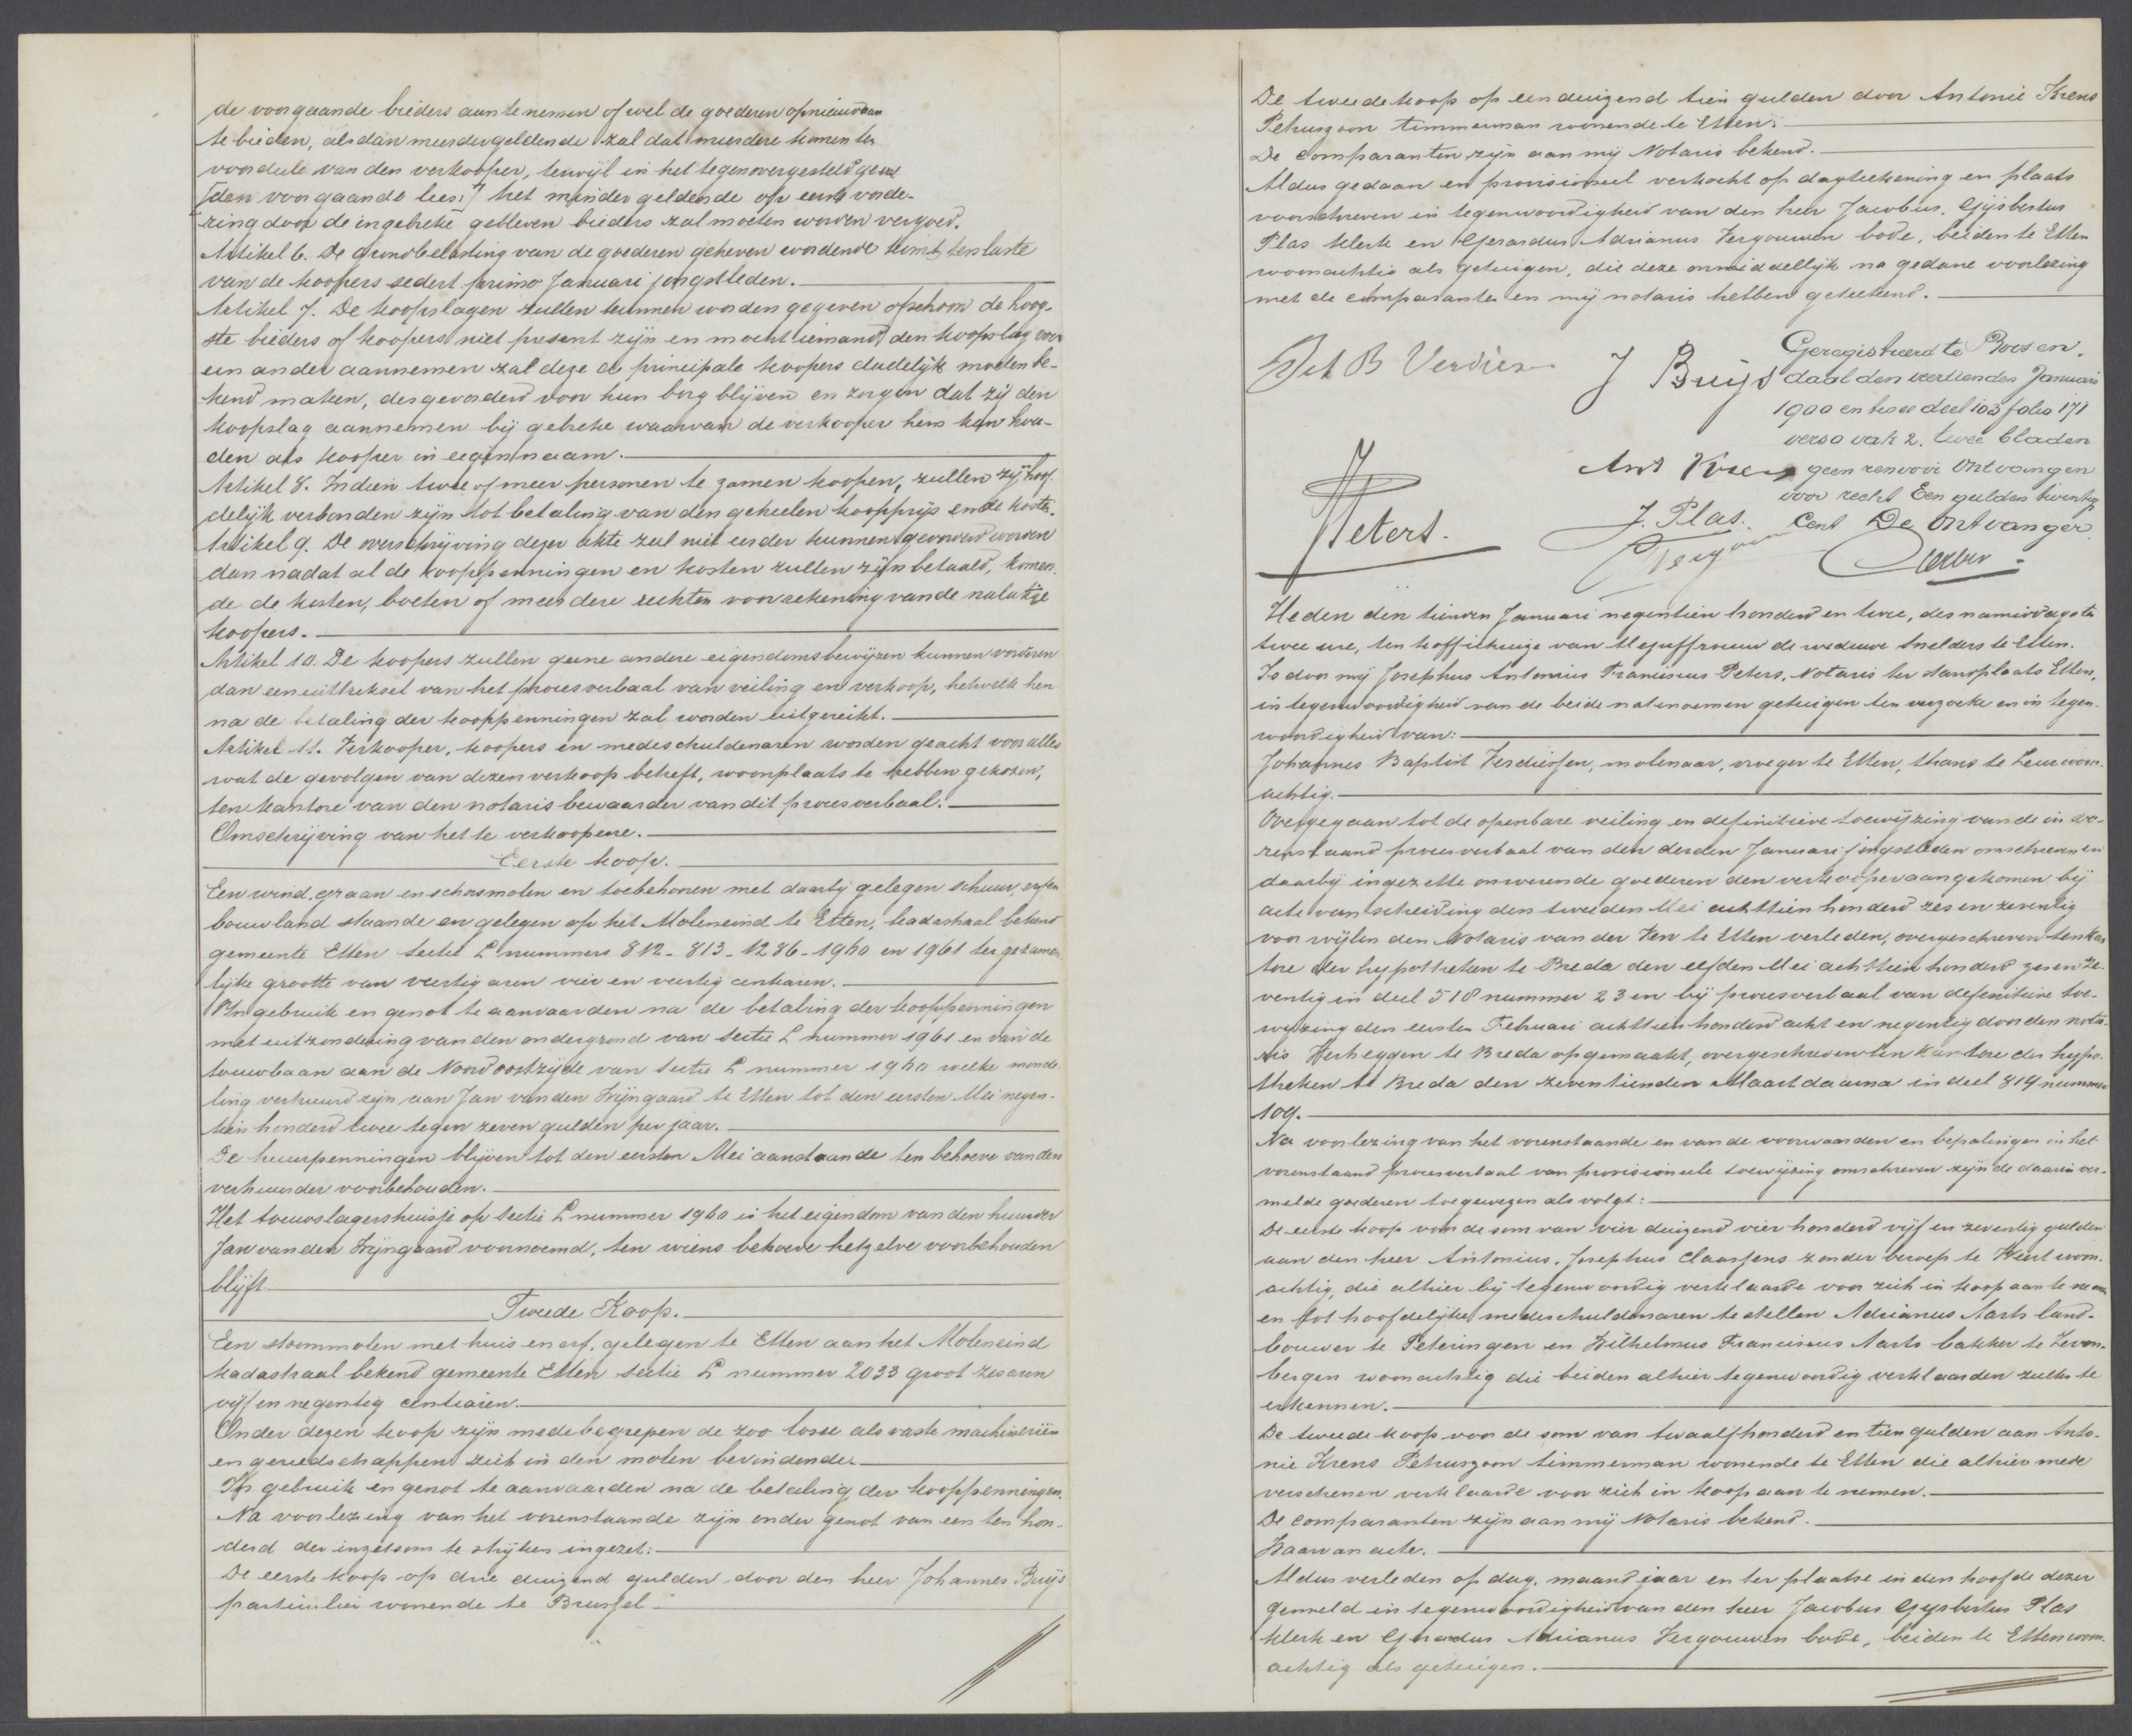 de voorgaande bieders aan te nemen of wel de goederen opnieuw aan
te bieden, alsdan meerdergeldende zal dat meerdere komen ten
voordeele van den verkooper, terwijl in het tegenovergesteld geval
den voorgaande bieder het mindergeldende op eerste vorde-
ring door de ingebreke gebleven bieders zal moeten worden vergoed.
Artikel 6. De grondbelasting van de goederen geheven wordende komt ten laste
van de koopers sedert primo Januari jongstleden.
Artikel 7. De koopslagen zullen kunnen worden gegeven ofschoon de hoog-
ste bieders of koopers niet present zijn en mocht iemand den koopslag voor
een ander aannemen zal deze de principale koopers dadelijk moeten be-
kend maken, desgevorderd voor hun borg blijven en zorgen dat zij den
koopslag aannemen bij gebreke waarvan de verkooper hem kan hou-
den als kooper in eigen naam.
Artikel 8. Indien twee of meer personen te zamen koopen, zullen zij hoof-
delijk verbonden zijn tot betaling van den geheelen koopprijs en de kosten.
Artikel 9. De overschrijving dezer akte zal niet eerder kunnen gevorderd worden
dan nadat al de kooppenningen en kosten zullen zijn betaald, komen
de de kosten, boeten of meerdere rechten voor rekening van de nalatige
koopers.
Artikel 10. De koopers zullen geene andere eigendomsbewijzen kunnen vorderen
dan een uittreksel van het procesverbaal van veiling en verkoop, hetwelk hen
na de betaling der kooppenningen zal worden uitgereikt.
Artikel 11. Verkooper, koopers en medeschuldenaren worden geacht voor alles
wat de gevolgen van dezen verkoop betreft, woonplaats te hebben gekozen,
ten kantore van den notaris bewaarder van dit procesverbaal.
Omschrijving van het te verkoopene.
Eerste koop.
Een wind, graan en schorsmolen en toebehooren met daarbij gelegen schuur, erf en
bouwland staande en gelegen op het Moleneind te Etten, kadastraal bekend
gemeente Etten sectie L nummers 812 - 813 - 1286 - 1960 en 1961 ter gezamen-
lijke grootte van veertig aren vier en veertig centiaren.
In gebruik en genot te aanvaarden na de betaling der kooppenningen
met uitzondering van den ondergrond van sectie L nummer 1961 en van de
touwbaan aan de Noordoostzijde van sectie L nummer 1960 welke monde-
ling verhuurd zijn aan Jan van den Wijngaard te Etten tot den eersten Mei negen-
tien honderd twee tegen zeven gulden per jaar.
De huurpenningen blijven tot den eersten Mei aanstaande ten behoeve van den
verhuurder voorbehouden.
Het touwslagershuisje op sectie L nummer 1960 is het eigendom van den huurder
Jan van den Wijngaard voornoemd, ten wiens behoeve hetzelve voorbehouden
blijft.
Tweede Koop.
Een stoommolen met huis en erf, gelegen te Etten aan het Moleneind
kadastraal bekend gemeente Etten sectie L nummer 2033 groot zes aren
vijf en negentig centiaren.
Onder dezen koop zijn mede begrepen de zoo losse als vaste machineriën
en gereedschappen zich in den molen bevindende.
In gebruik en genot te aanvaarden na de betaling der kooppenningen.
Na voorlezing van het vorenstaande zijn onder genot van een ten hon-
derd der inzetsom te strijken ingezet:
De eerste koop op drie duizend gulden door den heer Johannes Buijs
particulier wonende te Brussel.
De tweede koop op een duizend tien gulden door Antonie Krens
Petruszoon timmerman wonende te Etten.
De comparanten zijn aan mij Notaris bekend.
Aldus gedaan en provisioneel verkocht op dagteekening en plaats
voorschreven in tegenwoordigheid van den heer Jacobus, Gijsbertus
Plas klerk en Gerardus Adrianus Vergouwen bode, beiden te Etten
woonachtig als getuigen, die deze onmiddellijk na gedane voorlezing
met de comparanten en mij notaris hebben geteekend.
J Buijs
Geregistreerd te Roosen-
daal den veertienden Januari
1900 en twee deel 103 folio 171
verso vak 2. twee bladen
Ant Krens geen renvooi Ontvangen
voor recht Een gulden twintig
J. Plas. Cent De Ontvanger
Peters.
Heden den tienden Januari negentien honderd en twee, des namiddags te
twee ure, ten koffiehuize van Mejuffrouw de weduwe Snelders te Etten.
Is door mij Josephus Antonius Franciscus Peters, Notaris ter standplaats Etten,
in tegenwoordigheid van de beide natenoemen getuigen ten verzoeke en in tegen-
woordigheid van:
Johannes Baptist Verdiessen, molenaar, vroeger te Etten, thans te Leur woon-
achtig.
Overgegaan tot de openbare veiling en definitieve toewijzing van de in vo-
renstaand procesverbaal van den derden Januari jongstleden omschreven en
daarbij ingezette onroerende goederen den verkooper aangekomen bij
acte van scheiding den tweeden Mei achttien honderd zes en zeventig
voor wijlen den Notaris van der Ven te Etten verleden, overgeschreven ten kan
tore der hypotheken te Breda den elfden Mei achttien honderd zes en ze-
ventig in deel 518 nummer 23 en bij procesverbaal van definitieve toe-
wijzing den eersten Februari achttien honderd acht en negentig door den nota-
ris Verheggen te Breda opgemaakt, overgeschreven ten kantore der hypo-
theken te Breda den zeventienden Maart daarna in deel 819 nummer
109.
Na voorlezing van het vorenstaande en van de voorwaarden en bepalingen in het
vorenstaand procesverbaal van provisioneele toewijzing omschreven zijn de daarin ver-
melde goederen toegewezen als volgt:
De eerste koop voor de som van vier duizend vier honderd vijf en zeventig gulden
aan den heer Antonius, Josephus Claassens zonder beroep te Weert woon-
achtig, die alhier bij tegenwoordig verklaarde voor zich in koop aan te nemen
en tot hoofdelijke medeschuldenaren te stellen Adrianus Aarts land-
bouwer te Peteringen en Wilhelmus Franciscus Aarts bakker te Zeven-
bergen woonachtig die beiden alhier tegenwoordig verklaarden zulks te
erkennen.
De tweede koop voor de som van twaalfhonderd en tien gulden aan Anto-
nie Krens Petruszoon timmerman wonende te Etten die alhier mede
verschenen verklaarde voor zich in koop aan te nemen.
De comparanten zijn aan mij Notaris bekend.
Waarvan acte.
Aldus verleden op dag, maand jaar en ter plaatse in den hoofde dezer
gemeld in tegenwoordigheid van den heer Jacobus Gijsbertus Plas
klerk en Gerardus Adrianus Vergouwen bode, beiden te Etten woon-
achtig als getuigen.